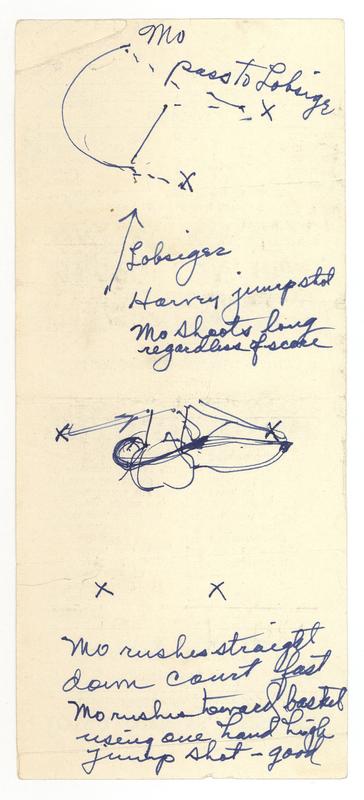 Mo
pass to Lobsiger
X
X
Lobsiger
Harvey jump shot
Mo shoots long
regardless of score
X X
X X
Mo rushes straight
down court fast
Mo rushes toward basket
using one hand high
jump shot - good